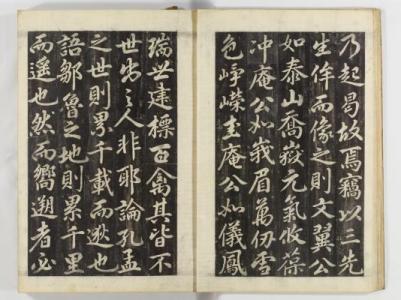 乃起曷故焉竊以三先
生侔而像之則文翼公
如泰山喬嶽元氣攸葆
冲庵公如峩眉萬仞雪
色崢嶸圭庵公如儀鳳
瑞世建標百禽其皆不
世出之人非耶論孔孟
之世則累千載而逖也
語鄒魯之地則累千里
而遥也然而嚮遡者必